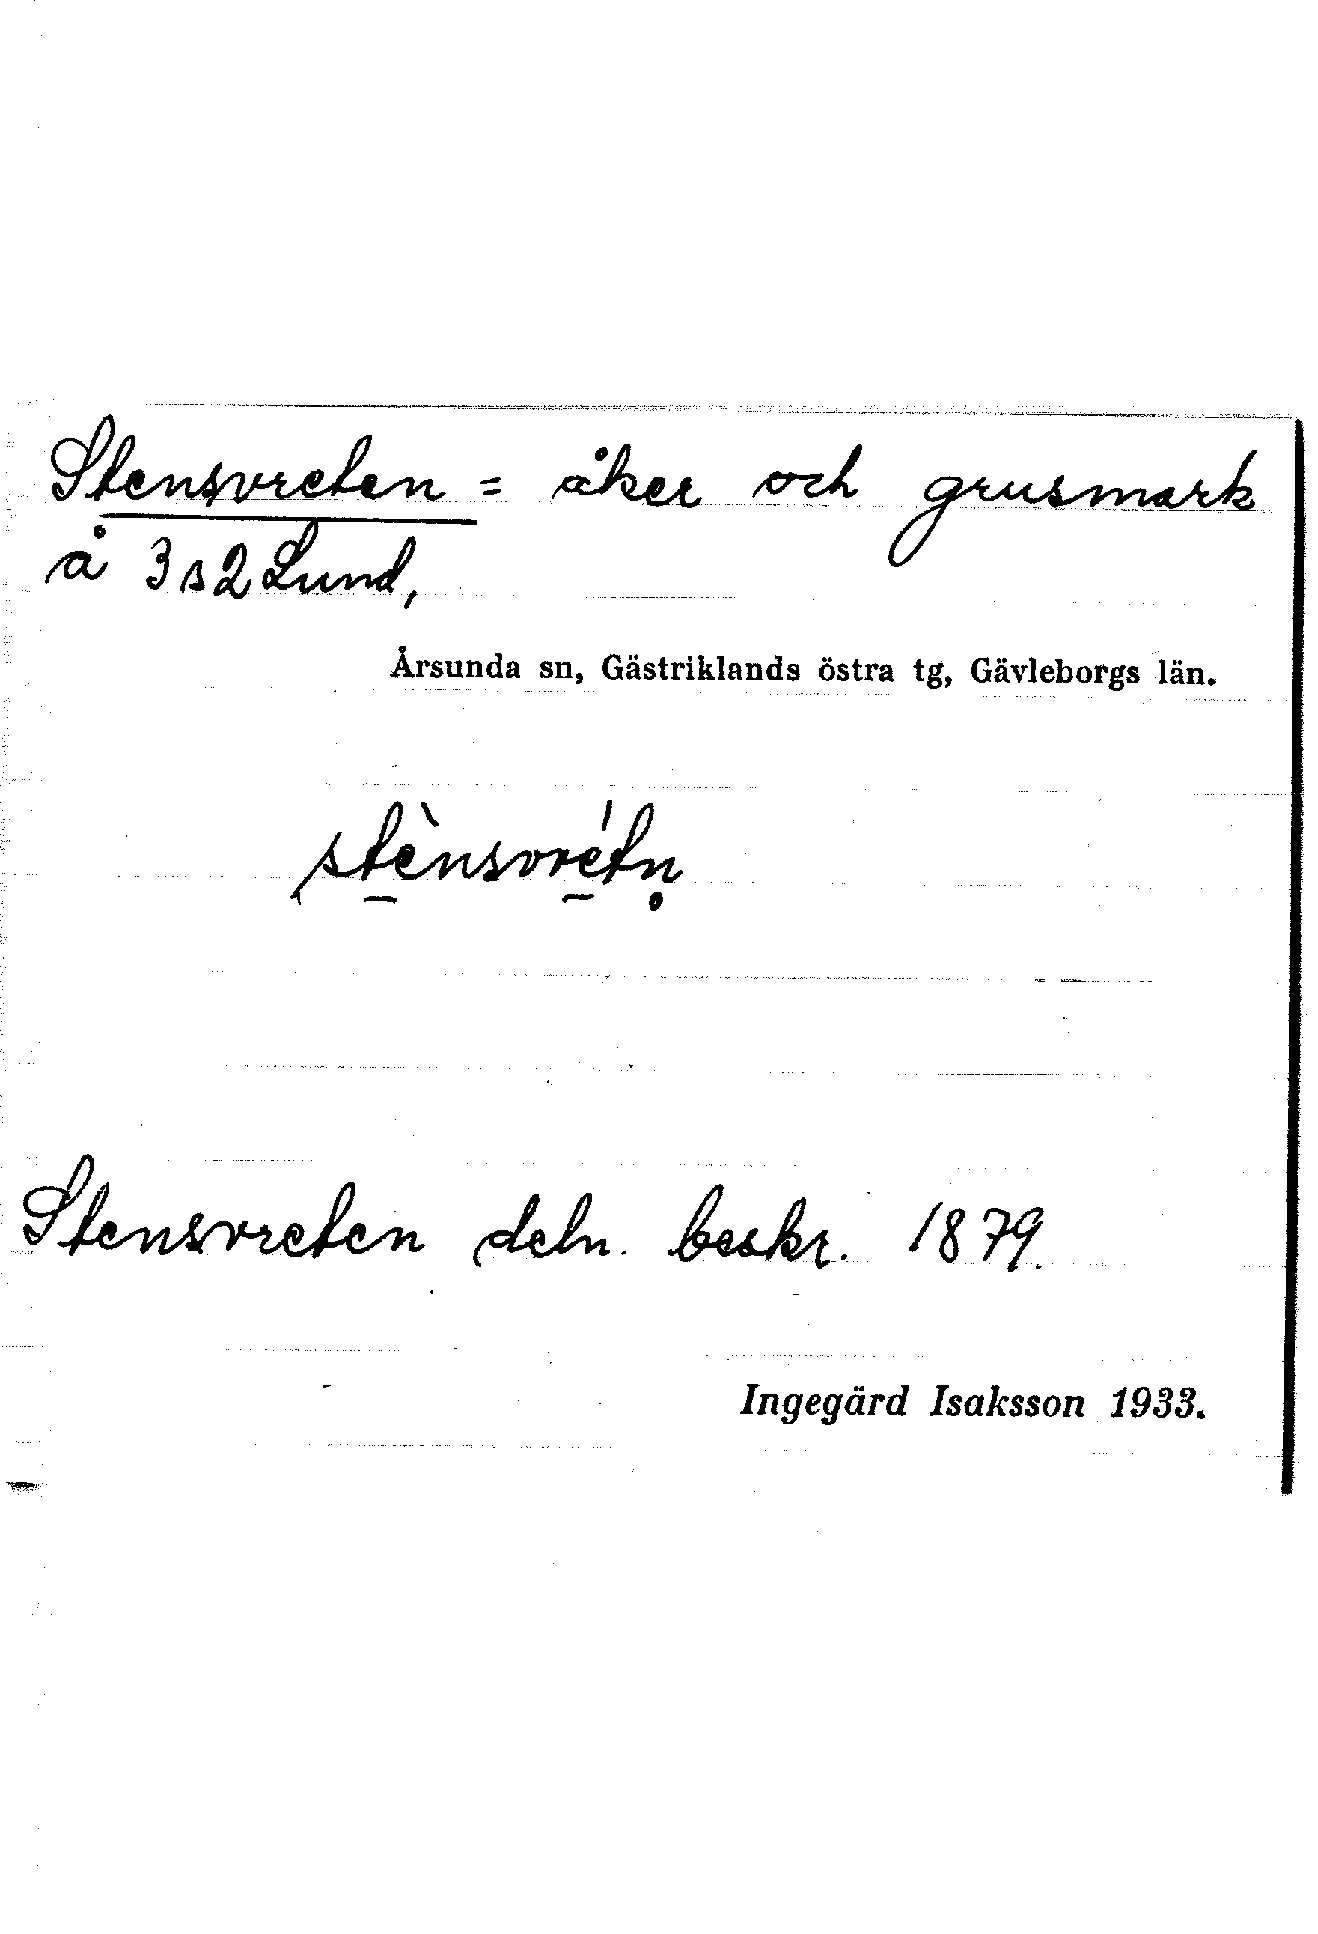 Stensvreten = åker och grusmark
å 3 s 2 Lund,
Årsunda sn, Gästriklands östra tg, Gävleborgs län.
stè̠nsvré̠tn̥
Stensvreten deln. beskr. 1879.
Ingegärd Isaksson 1933.